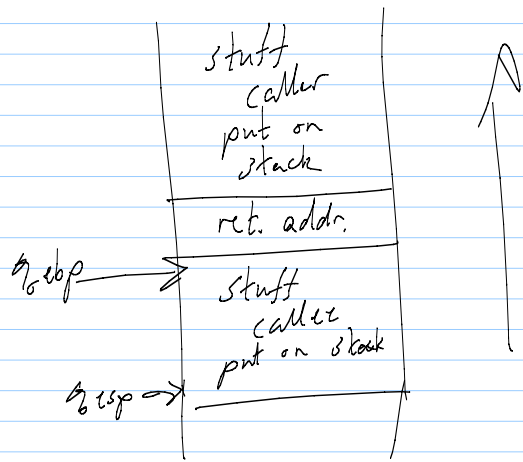 stuff
caller
put on
stack
ret. addr.
%ebp
stuff
callee
put on stack
%esp